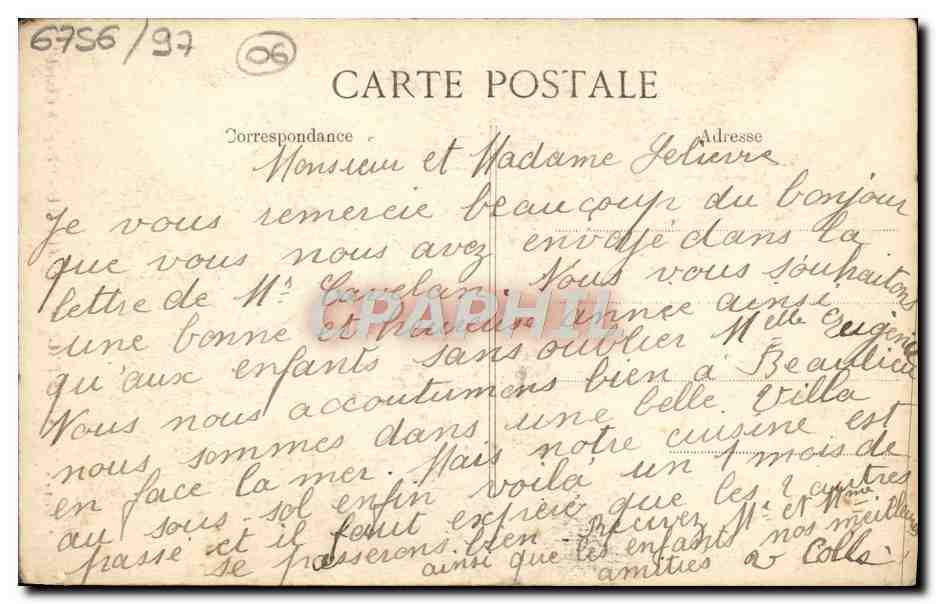 6756/97 06
CARTE POSTALE
Correspondance Adresse
Monsieur et Madame Lelievre
Je vous remercie beaucoup du bonjour
que vous nous avez envoyé dans la
lettre de Mr Cavelan. Nous vous souhaitons
CPARHTL
une bonne et heureuse année ainsi
qu'aux enfants sans oublier Melle Eugenie
Nous nous accoutumons bien à Beaulieu
nous sommes dans une belle Villa
en face la mer. Mais notre cuisine est
au sous-sol enfin voilà un 1 mois de
passé et il faut espéré que les 2 autres
se passerons bien. Recevez Mr et Mme
ainsi que les enfants nos meilleures
amitiés